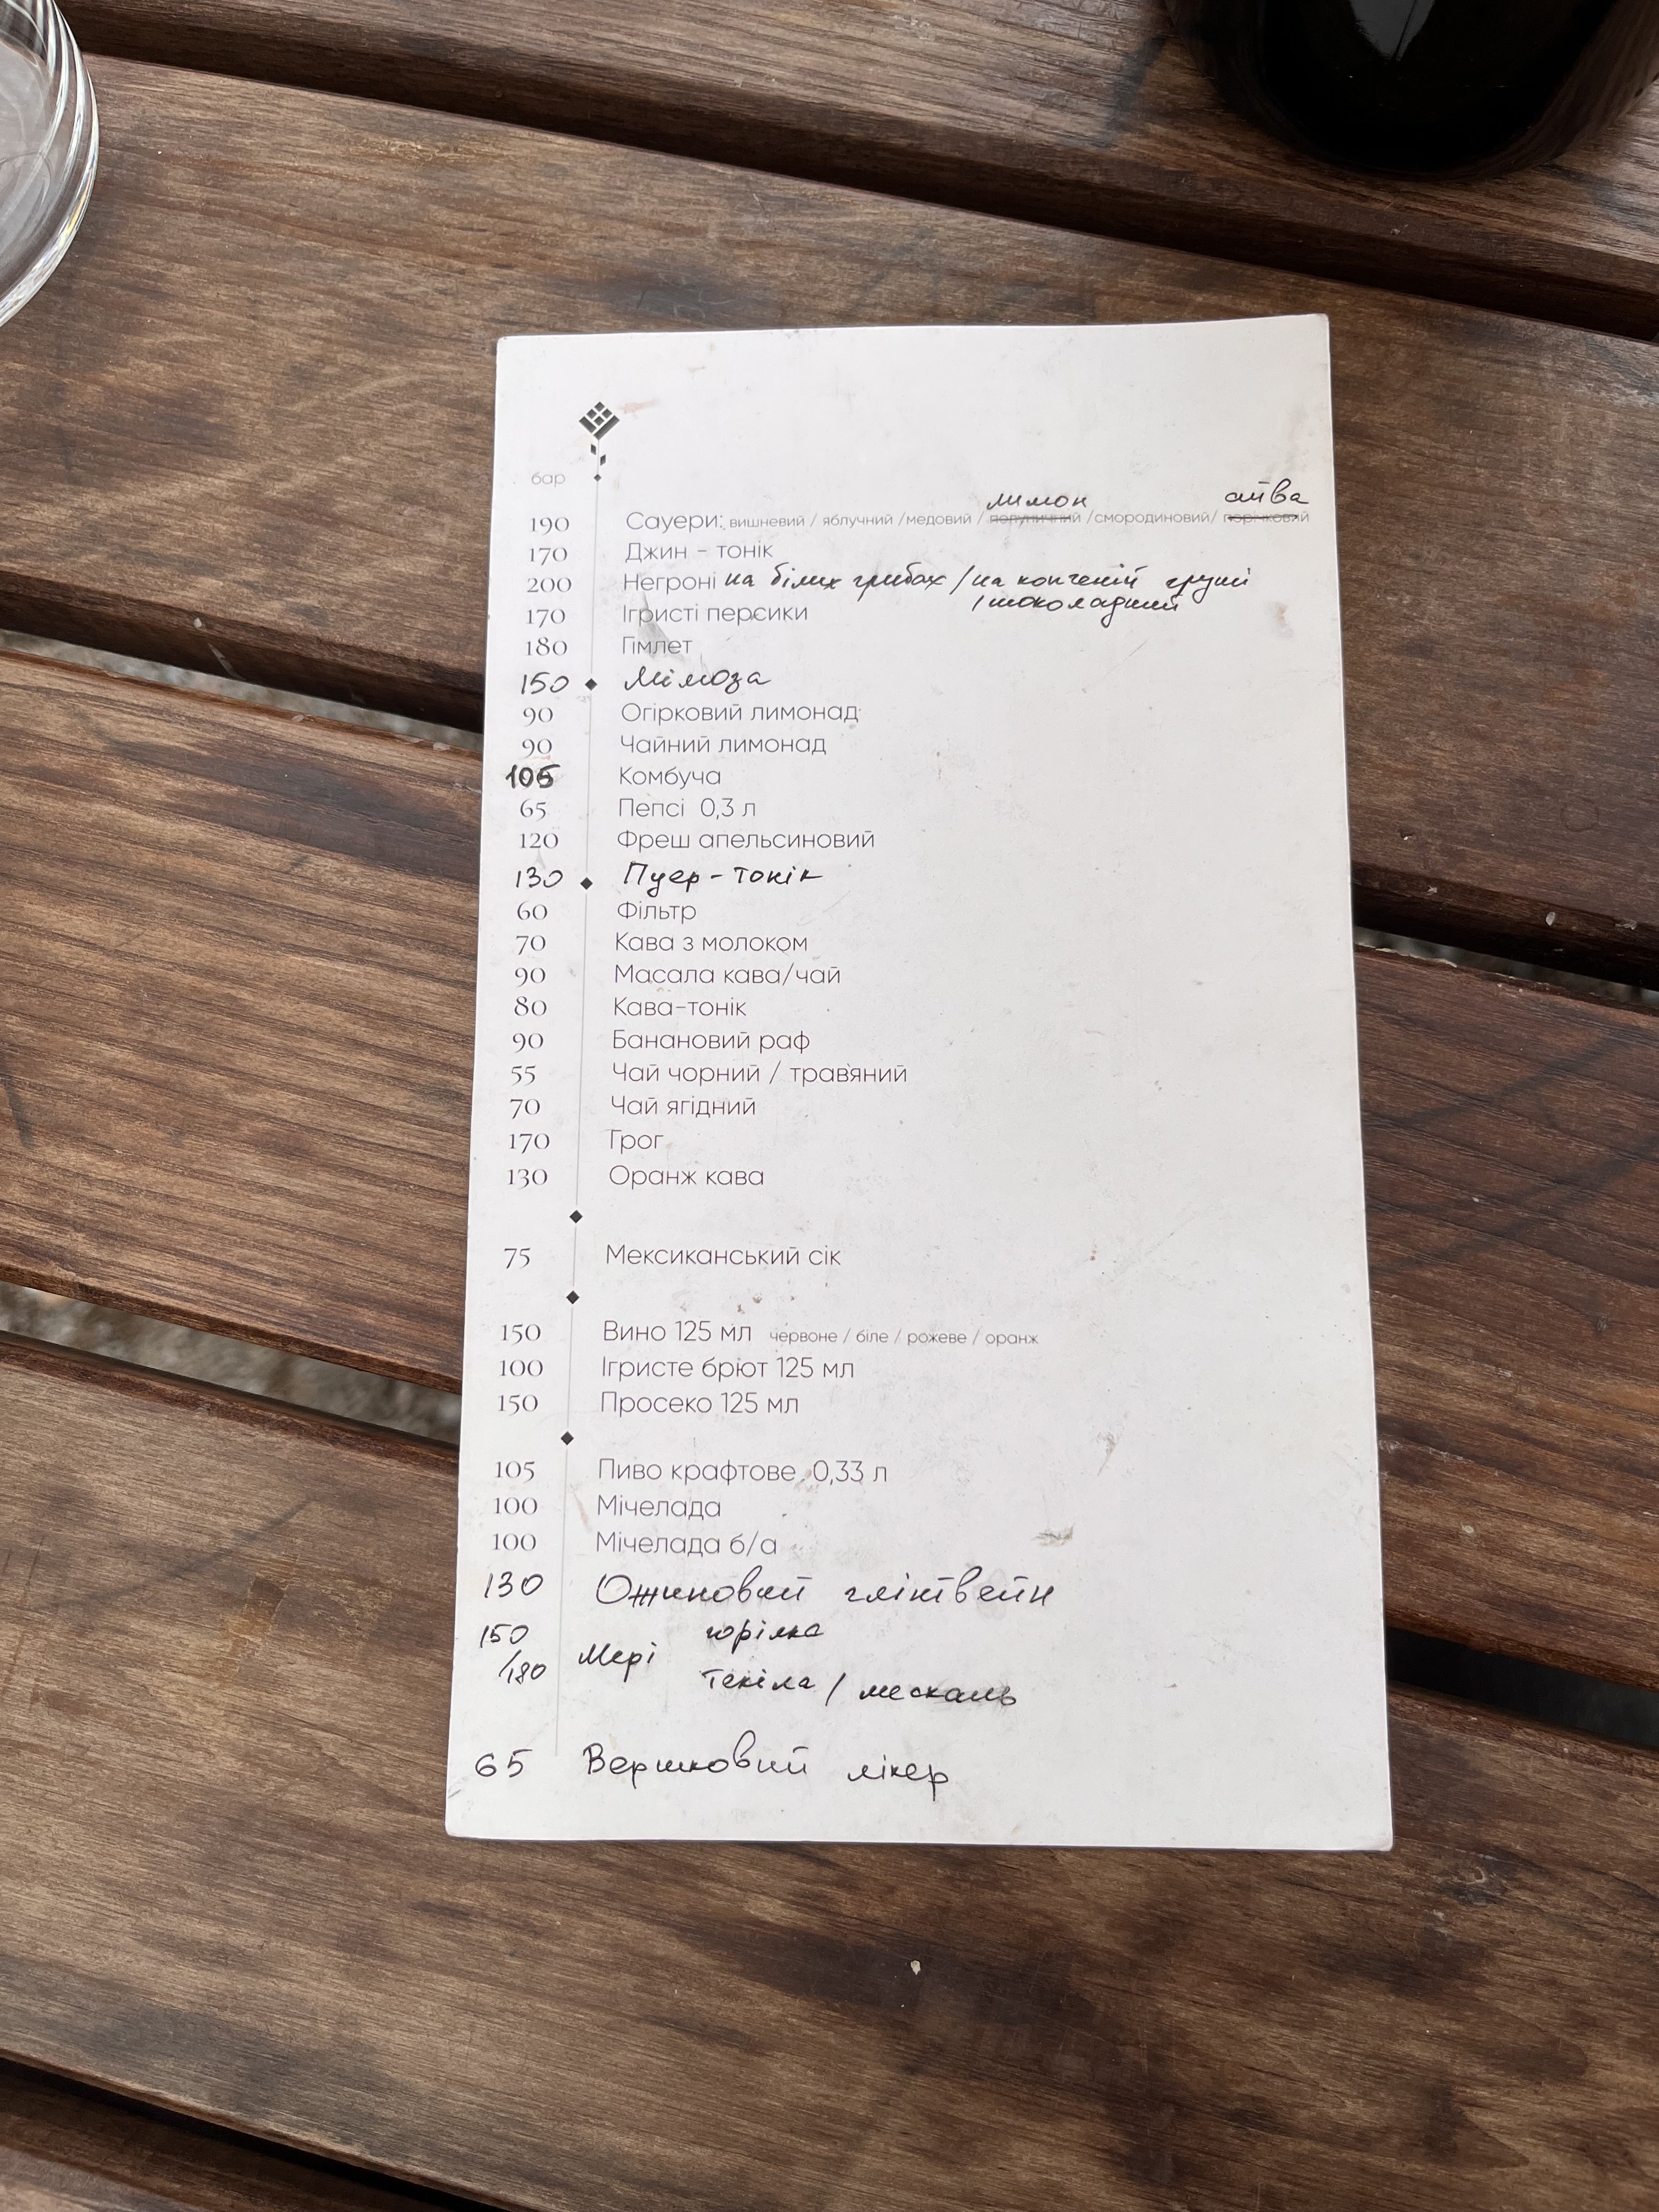 бар
лимон айва
190 Сауери: вишневий / яблучний /медовий / полуничний /смородиновий/ порічковий
170 Джин - тонік
200 Негроні на білих грибах / на копченій груші
/ шоколадний
170 Ігристі персики
180 Гімлет
150 Мімоза
90 Огірковий лимонад
90 Чайний лимонад
105 Комбуча
65 Пепсі 0,3 л
120 Фреш апельсиновий
130 Пуер-тонік
60 Фільтр
70 Кава з молоком
90 Масала кава/чай
80 Кава-тонік
90 Банановий раф
55 Чай чорний / трав'яний
70 Чай ягідний
170 Грог
130 Оранж кава
75 Мексиканський сік
150 Вино 125 мл червоне / біле / рожеве / оранж
100 Ігристе брют 125 мл
150 Просеко 125 мл
105 Пиво крафтове 0,33 л
100 Мічелада
100 Мічелада б/а
130 Ожиновий глінтвейн
150 горілка
/180 Мері текіла / мескаль
65 Вершковий лікер